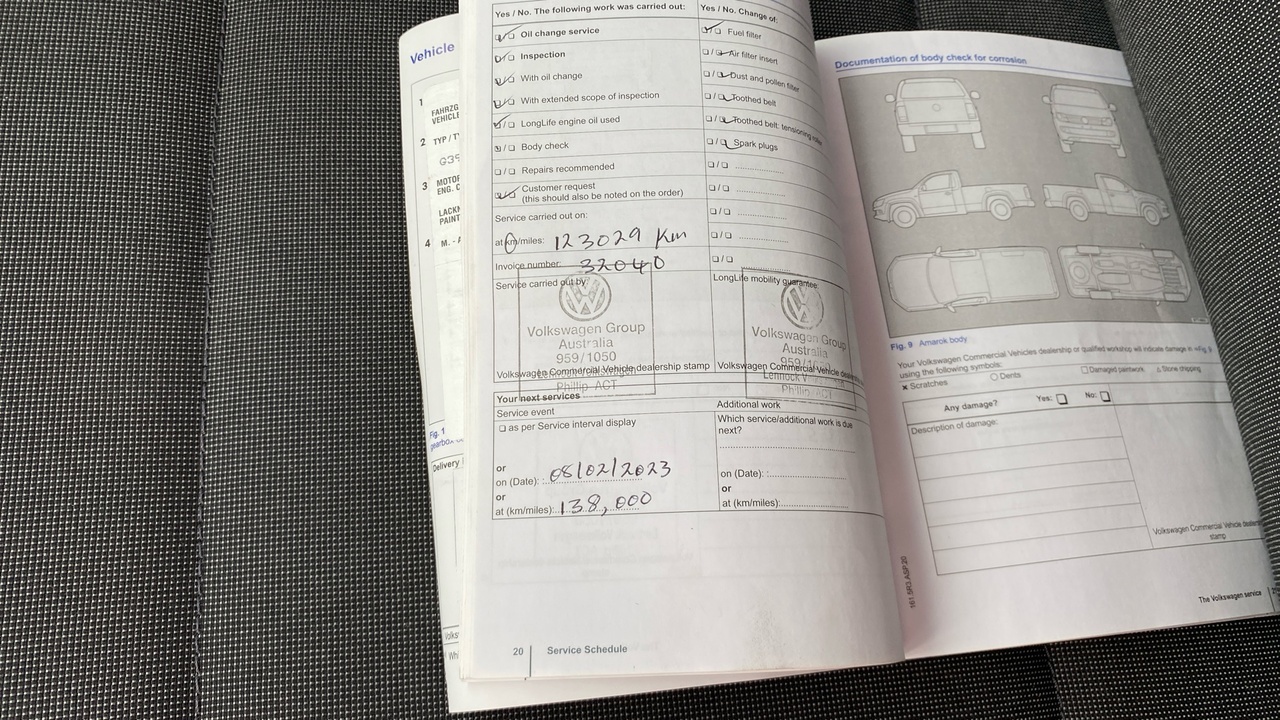 Vehicle
1
FAHRZG
VEHICLE
2 TYP / T
G39
3 MOTOR
ENG. C
LACKN
PAINT
4 M. - A
Fig. 1
gearbox
Delivery
Yes / No. The following work was carried out:
☑/☐ Oil change service
☑/☐ Inspection
☑/☐ With oil change
☑/☐ With extended scope of inspection
☑/☐ LongLife engine oil used
☑/☐ Body check
☐/☐ Repairs recommended
☑/☐ Customer request
(this should also be noted on the order)
Service carried out on:
at km/miles: 123029 Km
Invoice number: 32040
Service carried out by:
Volkswagen Group
Australia
959/1050
Volkswagen Commercial Vehicle dealership stamp
Phillip ACT
Yes / No. Change of:
☑/☐ Fuel filter
☐/☑ Air filter insert
☐/☑ Dust and pollen filter
☐/☑ Toothed belt
☐/☑ Toothed belt: tensioning
☐/☑ Spark plugs
☐/☐ ..................
☐/☐ ..................
☐/☐ ..................
☐/☐ ..................
☐/☐
LongLife mobility guarantee:
Volkswagen Group
Australia
Volkswagen Commercial Vehicle
Lennock
Phillip ACT
Your next services
Service event
☐ as per Service interval display
or
on (Date): 08/02/2023
or
at (km/miles): 138,000
Additional work
Which service/additional work is due
next?
on (Date):
or
at (km/miles):
20 Service Schedule
Documentation of body check for corrosion
Fig. 9 Amarok body
Your Volkswagen Commercial Vehicles dealership or qualified workshop will indicate damage in
using the following symbols:
× Scratches ○ Dents ☐ Damaged paintwork Stone chipping
Any damage? Yes: ☐ No: ☐
Description of damage:
Volkswagen Commercial Vehicle
stamp
161.5R3.ASP.20
The Volkswagen service